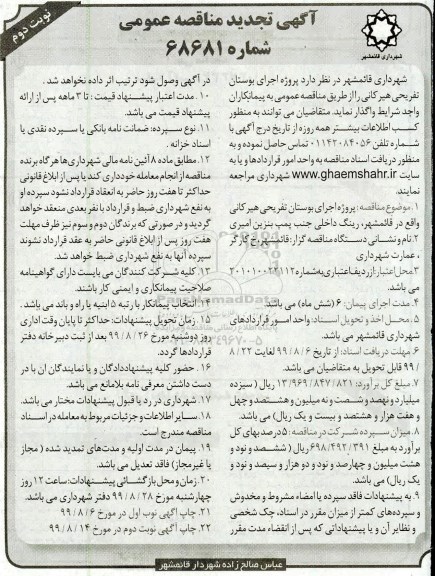 نوبت دوم
آگهی تجدید مناقصه عمومی
شماره ۶۸۶۸۱
شهرداری قائمشهر
شهرداری قائمشهر در نظر دارد پروژه اجرای بوستان
تفریحی هیرکانی را از طریق مناقصه عمومی به پیمانکاران
واجد شرایط واگذار نماید. متقاضیان می توانند به منظور
کسب اطلاعات بیشتر همه روزه از تاریخ درج آگهی با
شماره تلفن ۰۱۱۴۲۰۸۴۰۵۶ تماس حاصل نموده و به
منظور دریافت اسناد مناقصه به واحد امور قراردادها و یا به
سایت www.ghaemshahr.ir شهرداری مراجعه
نمایند.
۱. موضوع مناقصه: پروژه اجرای بوستان تفریحی هیرکانی
واقع در قائمشهر، رینگ داخلی جنب پمپ بنزین امیری
۲. نام و نشانی دستگاه مناقصه گزار: قائمشهرخ کارگر
، عمارت شهرداری
۳. محل اعتبار: از ردیف اعتباری به شماره ۲۰۱۰۱۰۰۲۲۱۱۲
می باشد.
۴. مدت اجرای پیمان: ۶ (شش ماه) می باشد.
۵. محل اخذ و تحویل اسناد: واحد امور قراردادهای
شهرداری قائمشهر می باشد.
۶. مهلت دریافت اسناد: از تاریخ ۹۹/۸/۶ لغایت ۸/۲۲/
۹۹ قابل تحویل به متقاضیان می باشد.
۷. مبلغ کل برآورد: ۱۳/۹۶۹/۸۴۷/۸۲۱ ریال (سیزده
میلیارد و نهصد و شصت و نه میلیون و هشتصد و چهل
و هفت هزار و هشتصد و بیست و یک ریال) می باشد.
۸. میزان سپرده شرکت در مناقصه: ۵ درصد بهای کل
برآورد به مبلغ ۶۹۸/۴۹۲/۳۹۱ ریال (ششصد و نود و
هشت میلیون و چهارصد و نود و دو هزار و سیصد و نود و
یک ریال) می باشد.
۹. به پیشنهادات فاقد سپرده یا امضاء مشروط و مخدوش
و سپرده‌های کمتر از میزان مقرر در اسناد، چک شخصی
و نظایر آن و یا پیشنهاداتی که پس از انقضاء مدت مقرر
در آگهی وصول شود ترتیب اثر داده نخواهد شد.
۱۰. مدت اعتبار پیشنهاد قیمت: تا ۳ ماهه پس از ارائه
پیشنهاد قیمت می باشد.
۱۱. نوع سپرده: ضمانت نامه بانکی یا سپرده نقدی یا
اسناد خزانه.
۱۲. مطابق ماده ۸ آئین نامه مالی شهرداری ها هر گاه برنده
مناقصه از انجام معامله خودداری کند یا پس از ابلاغ قانونی
حداکثر تا هفت روز حاضر به انعقاد قرارداد نشود سپرده او
به نفع شهرداری ضبط و قرارداد با نفر بعدی منعقد خواهد
گردید و در صورتی که برندگان دوم و سوم نیز ظرف مهلت
هفت روز پس از ابلاغ قانونی حاضر به عقد قرارداد نشوند
سپرده آنها به نفع شهرداری ضبط خواهد شد.
۱۳. کلیه شرکت کنندگان می بایست دارای گواهینامه
صلاحیت پیمانکاری و ایمنی کار باشند.
۱۴. انتخاب پیمانکار با رتبه ۵ ابنیه یا راه و باند می باشد.
۱۵. زمان تحویل پیشنهادات: حداکثر تا پایان وقت اداری
روز دوشنبه مورخ ۹۹/۸/۲۶ بعد از ثبت دبیرخانه دفتر
قراردادها گردد.
۱۶. حضور کلیه پیشنهاددادگان و یا نمایندگان ان با در
دست داشتن معرفی نامه بلامانع می باشد.
۱۷. شهرداری در رد یا قبول پیشنهادات مختار می باشد.
۱۸. سایر اطلاعات و جزئیات مربوط به معامله در اسناد
مناقصه مندرج است.
۱۹. پیمان در مدت اولیه و مدت‌های تمدید شده (مجاز
یا غیرمجاز) فاقد تعدیل می باشد.
۲۰. زمان و محل بازگشائی پیشنهادات: ساعت ۱۲ روز
چهارشنبه مورخ ۹۹/۸/۲۸ دفتر شهرداری می باشد.
۲۱. چاپ آگهی نوب اول در مورخ ۹۹/۸/۶
۲۲. چاپ آگهی نوبت دوم در مورخ ۹۹/۸/۱۴
عباس صالح زاده شهردار قائمشهر